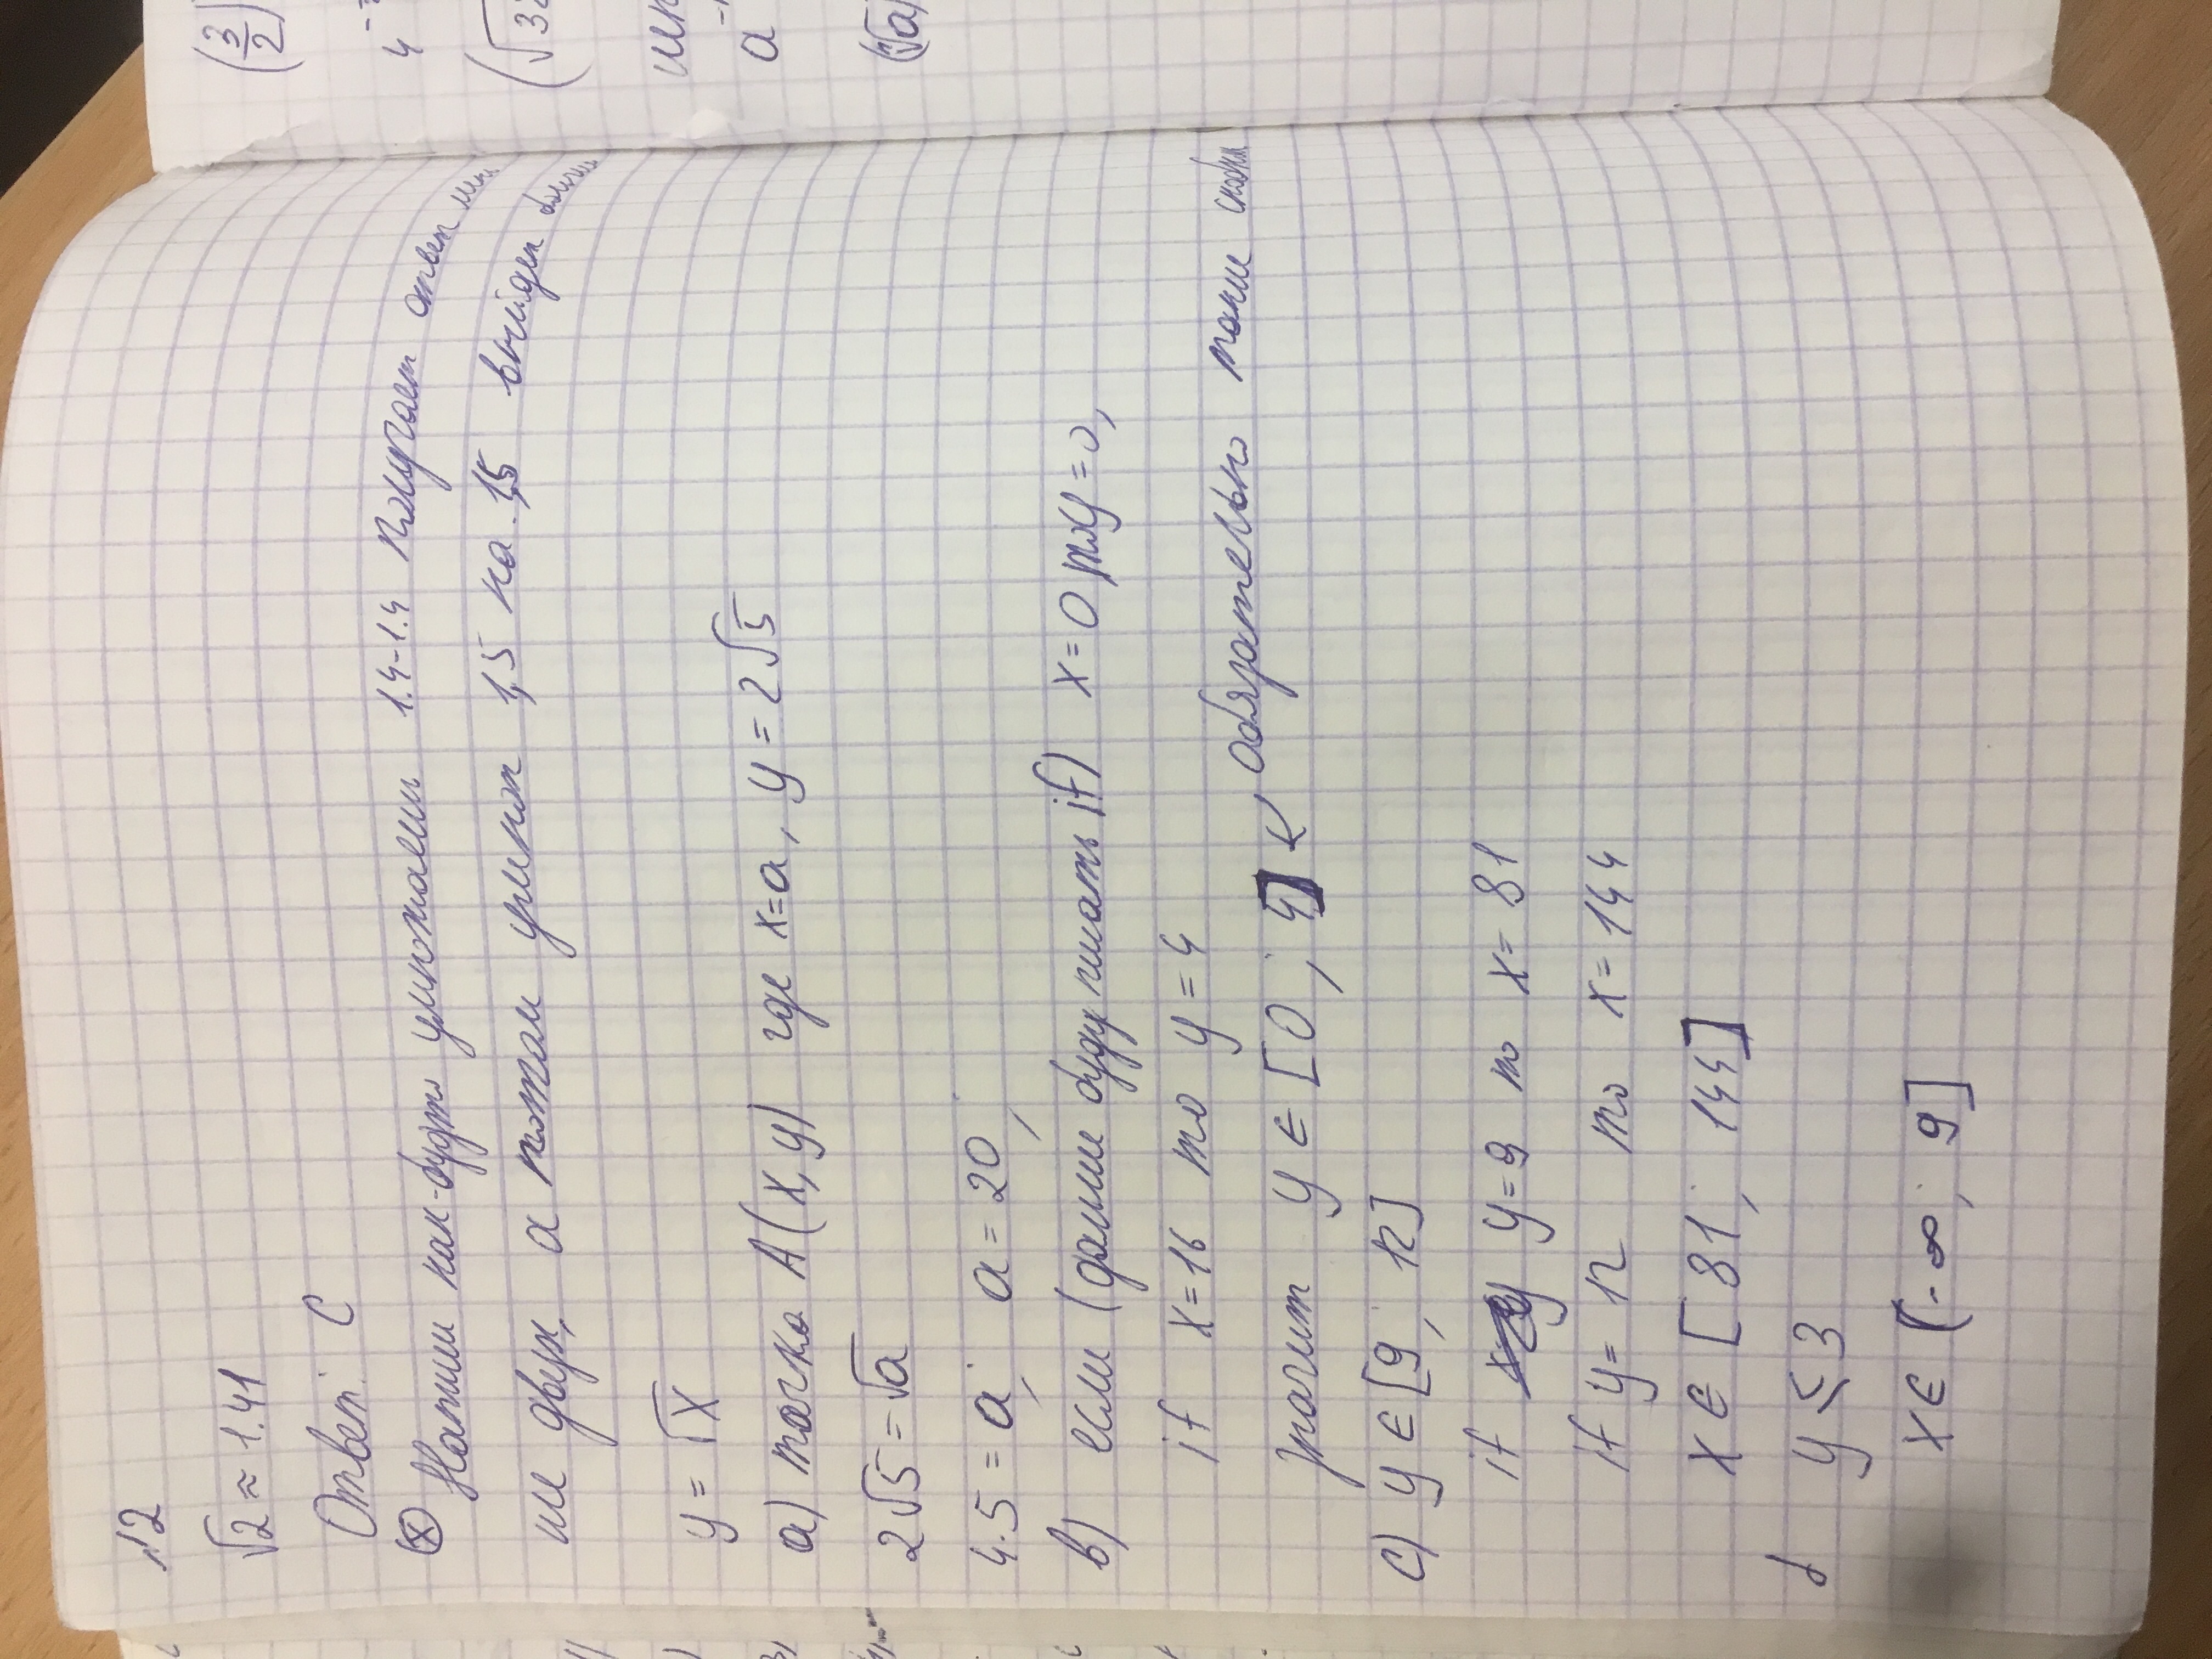 №2
√2 ≈ 1.41
Ответ: С
(x) Напиши как-будто умножаеш 1.4-1.4 Получает ответ мень
ше двух, а потом умнож 1,5 на 1,5 выйдет больше
y = √x
а) точка A(x, y) где x=a, y = 2√5
2√5 = √a
4·5 = a; a = 20;
b) если (дальше буду писать if) x=0 то y=0,
if x=16 то y=4
значит y ∈ [0 ; 4] ← обязательно такие скобки
c) y ∈ [9 ; 12]
if y=9 то x= 81
if y= 12 то x= 144
x ∈ [81 ; 144]
d y ⩽ 3
x ∈ (-∞ ; 9]
(3/2)
4
(√32
a
(√a)